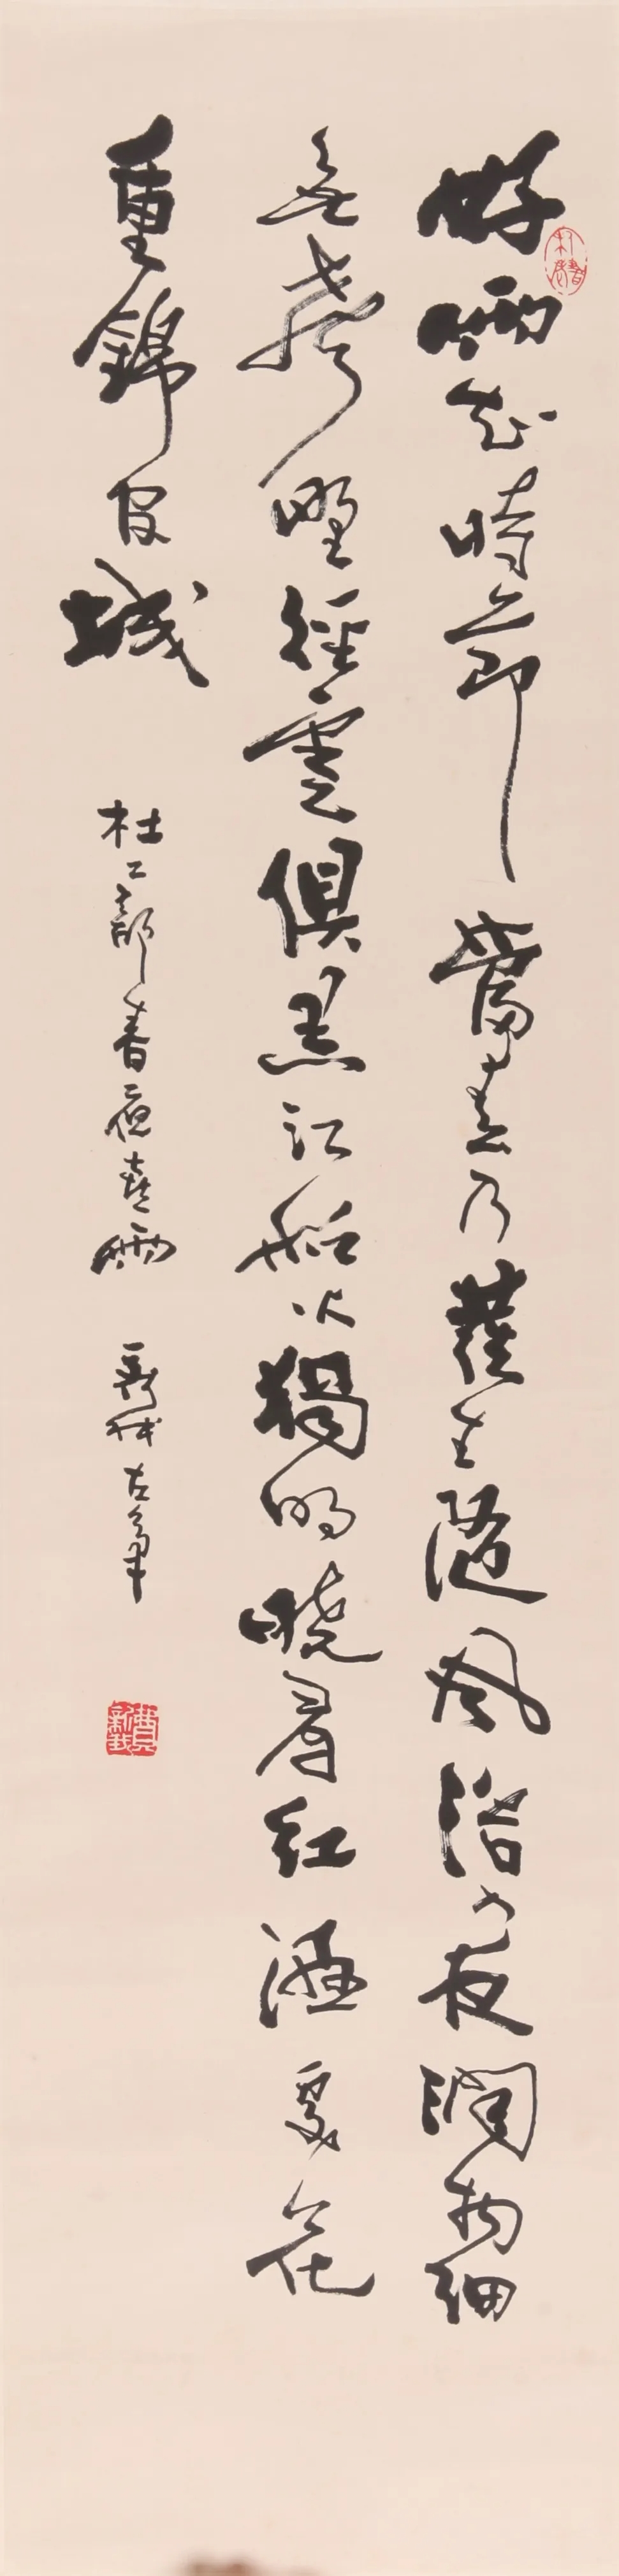 好雨知時節當春乃發生隨風潛入夜潤物細
無聲野徑雲俱黑江船火獨明曉看紅濕處花
重錦官城
杜工部春夜喜雨 新我左筆
費新我